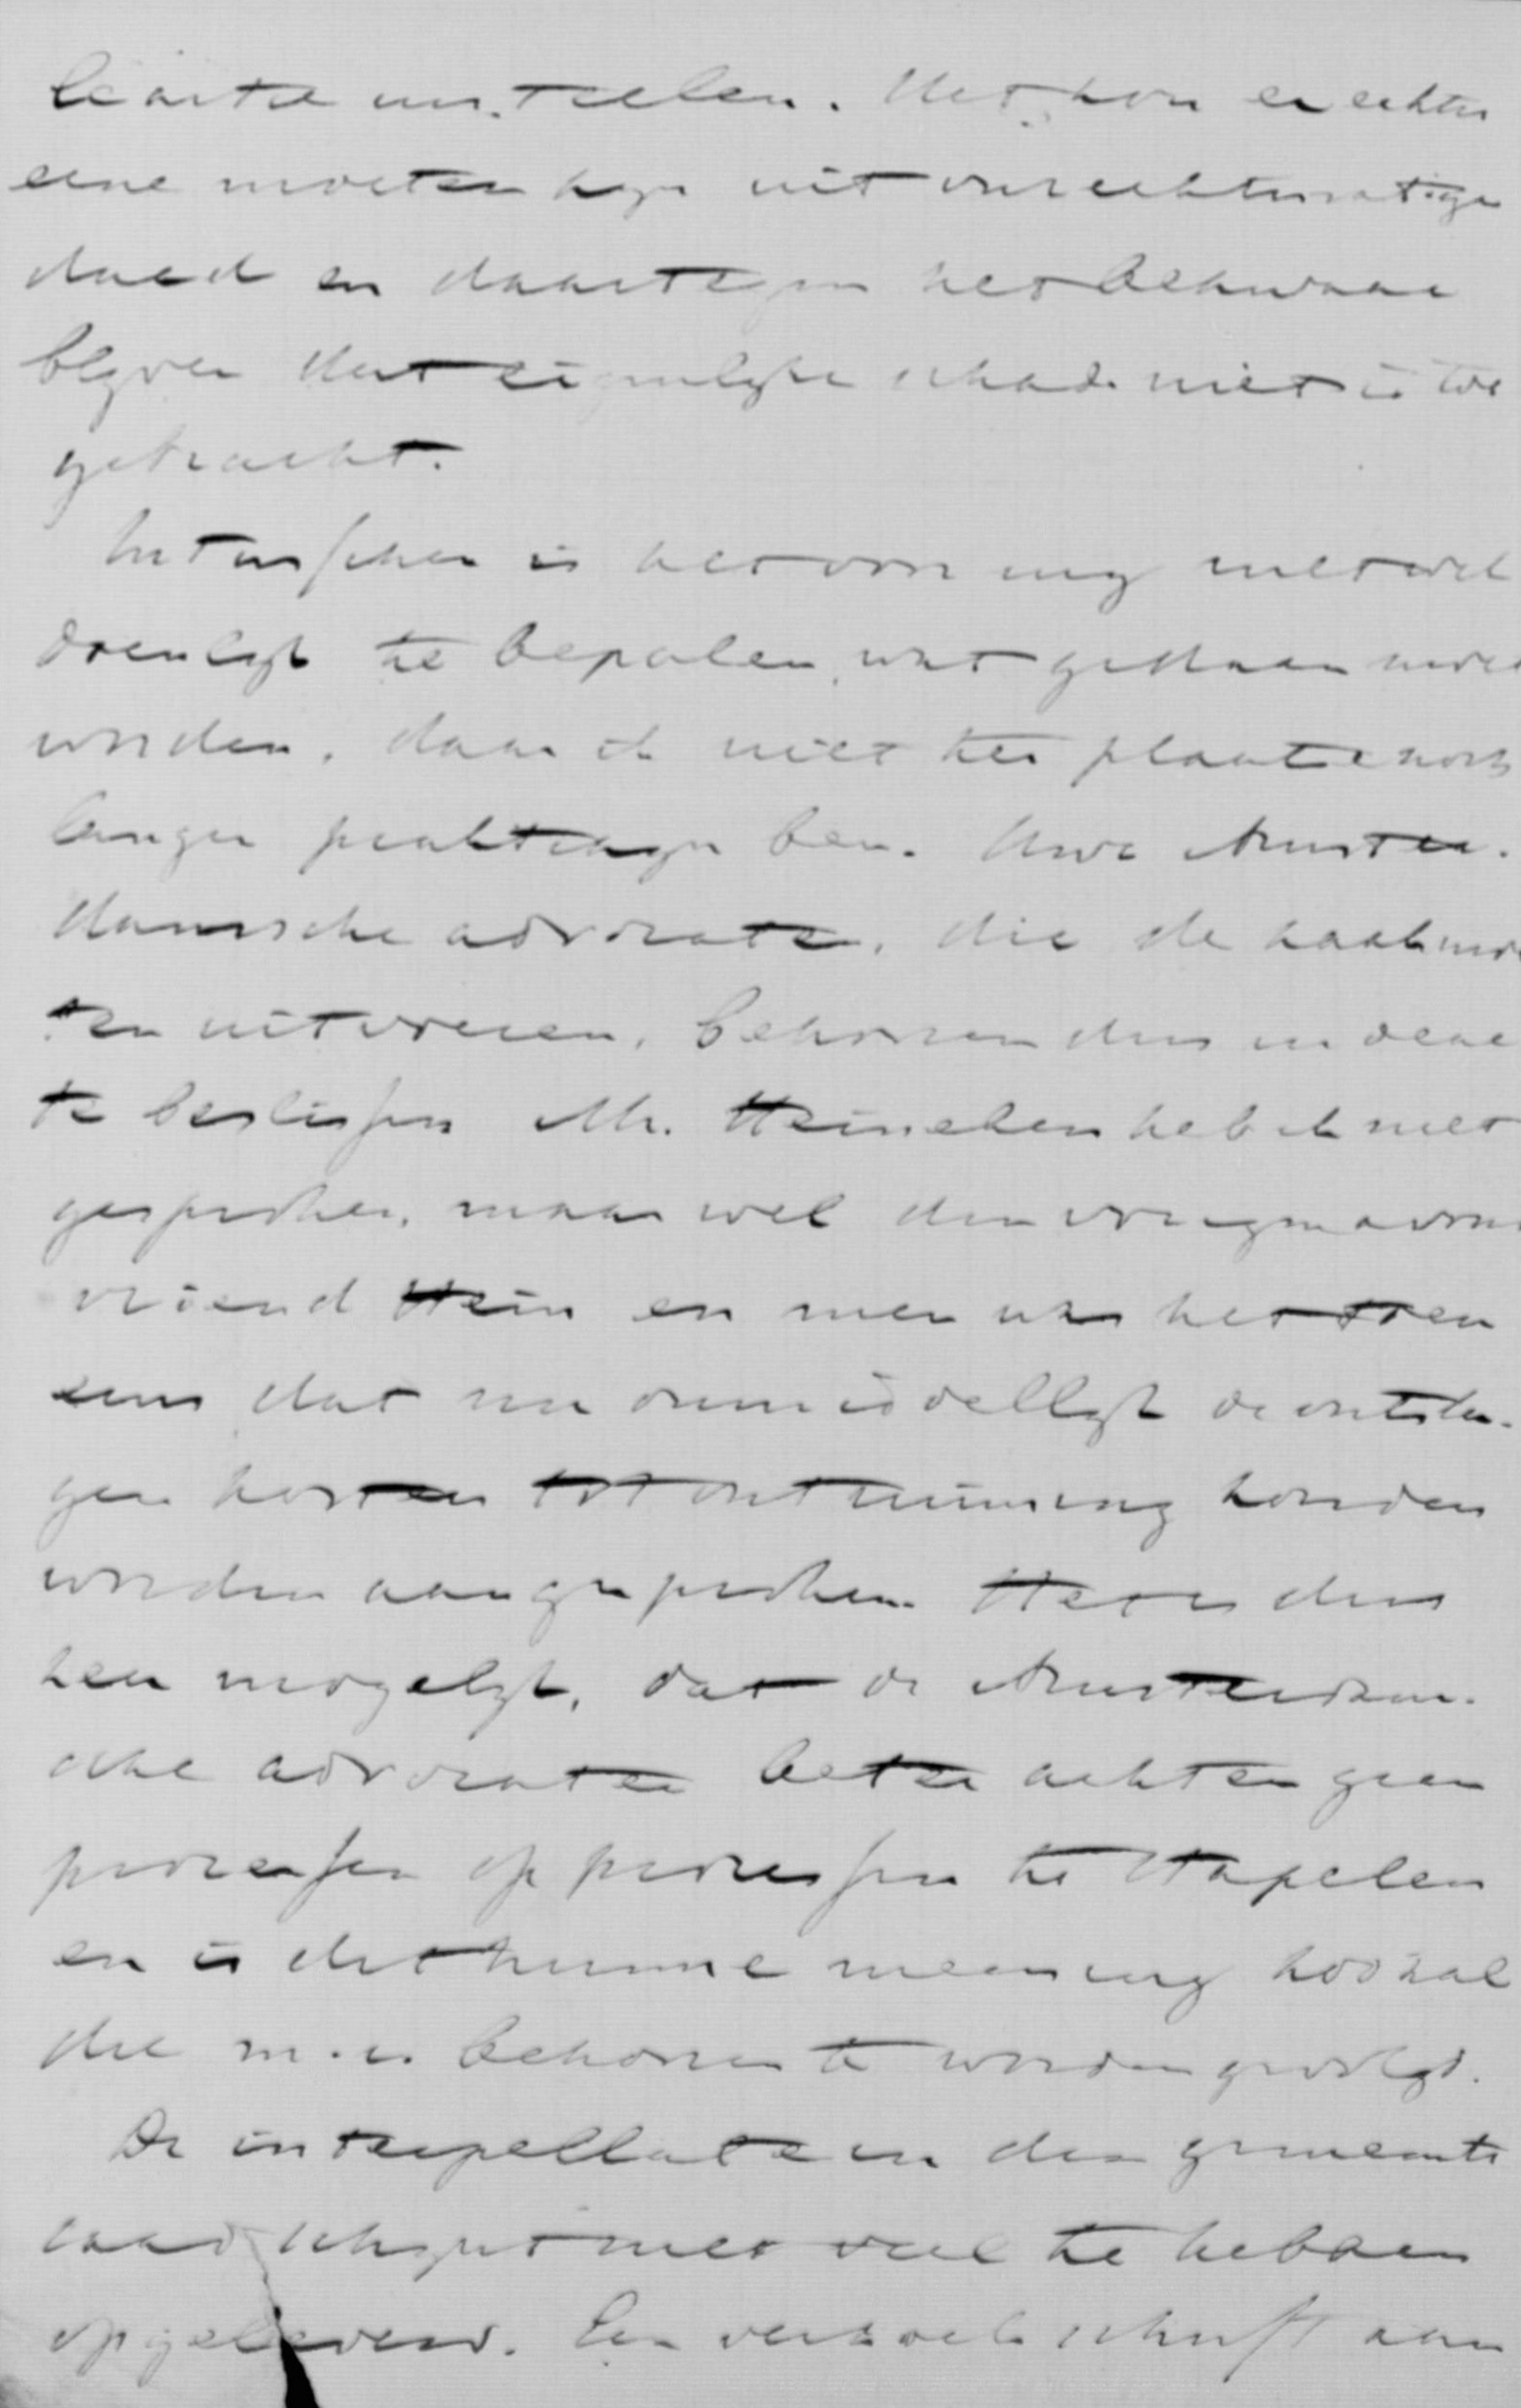 instellen. Het zou er echter
eene moeten zijn uit onrechtmatige
daad en daartegen het bezwaar
blijven dat eigenlijke schade niet is toe
gebracht.
Intusschen is het voor mij niet wel
doenlijk te bepalen, wat gedaan moet
worden, daar ik niet ter plaatse noch
langer praktizijn ben. Uwe Amster-
damsche advocaten, die de zaak moe
ten uitvoeren, behooren dus in deze
te beslissen. Mr. Heineken heb ik niet
gesproken, maar wel den vorigen avond
vriend Hein en men was het toen
eens dat nu onmiddellijk de ontsla-
gen kosten tot ontruiming konden
worden aangesproken. Het is dus
zeer mogelijk, dat de Amsterdam-
sche advocaten beter achten geen
processen op processen te stapelen
en is dit hunne meening zoo zal
die m.i. behooren te worden gevolgd.
De interpellatie in den gemeente
raad schijnt niet veel te hebben
opgeleverd. Een verzoekschrift aan